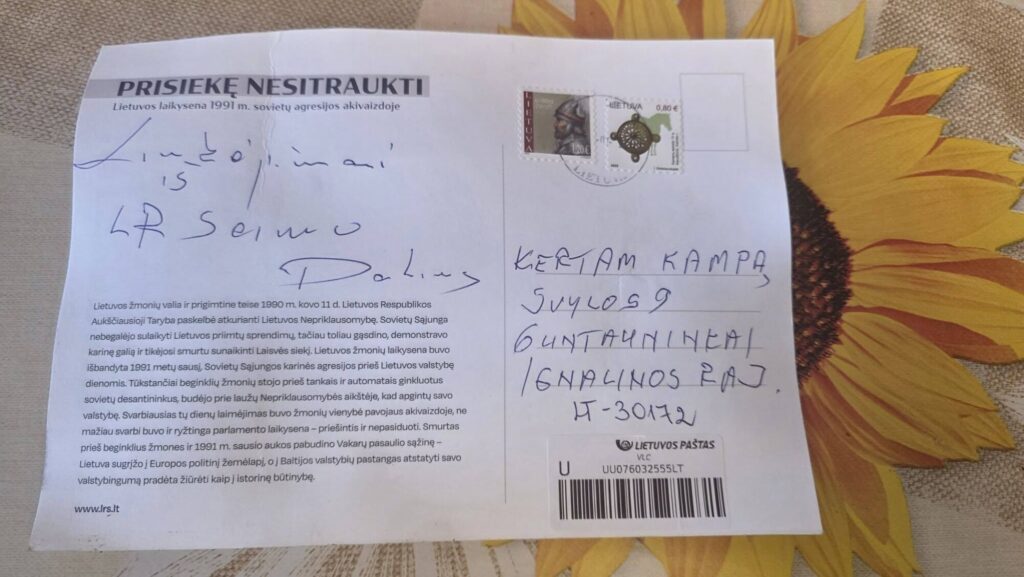 PRISIEKĘ NESITRAUKTI
Lietuvos laikysena 1991 m. sovietų agresijos akivaizdoje
Linkėjimai
iš
LR Seimo
Dalius
Lietuvos žmonių valia ir prigimtine teise 1990 m. kovo 11 d. Lietuvos Respublikos
Aukščiausioji Taryba paskelbė atkurianti Lietuvos Nepriklausomybę. Sovietų Sąjunga
nebegalėjo sulaikyti Lietuvos priimtų sprendimų, tačiau toliau gąsdino, demonstravo
karinę galią ir tikėjosi smurtu sunaikinti Laisvės siekį. Lietuvos žmonių laikysena buvo
išbandyta 1991 metų sausį, Sovietų Sąjungos karinės agresijos prieš Lietuvos valstybę
dienomis. Tūkstančiai beginklių žmonių stojo prieš tankais ir automatais ginkluotus
sovietų desantininkus, budėjo prie laužų Nepriklausomybės aikštėje, kad apgintų savo
valstybę. Svarbiausias tų dienų laimėjimas buvo žmonių vienybė pavojaus akivaizdoje, ne
mažiau svarbi buvo ir ryžtinga parlamento laikysena – priešintis ir nepasiduoti. Smurtas
prieš beginklius žmones ir 1991 m. sausio aukos pabudino Vakarų pasaulio sąžinę –
Lietuva sugrįžo į Europos politinį žemėlapį, o į Baltijos valstybių pastangas atstatyti savo
valstybingumą pradėta žiūrėti kaip į istorinę būtinybę.
www.lrs.lt
LIETUVA
LIETUVA 0,80 €
KERTAM KAMPĄ
SVYLOS 9
GUNTAUNINKAI
IGNALINOS RAJ.
LT-30172
LIETUVOS PAŠTAS
VLC
U UU076032555LT